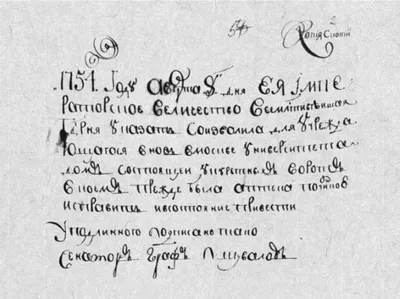 54
2
Копия с копии
1754. Году августа 8 дня ЕЯ ІМПЕ
раторское величество всемилостивеишая
Гдрня указать соизволила для учрежда
ющагося вновь в москве университета
домъ состоящеи у куретныхъ воротъ
в коемъ прежде была аптека
исправить и в состояние привести
У подлинного подписано тако
Сенаторъ Графъ П Шуваловъ